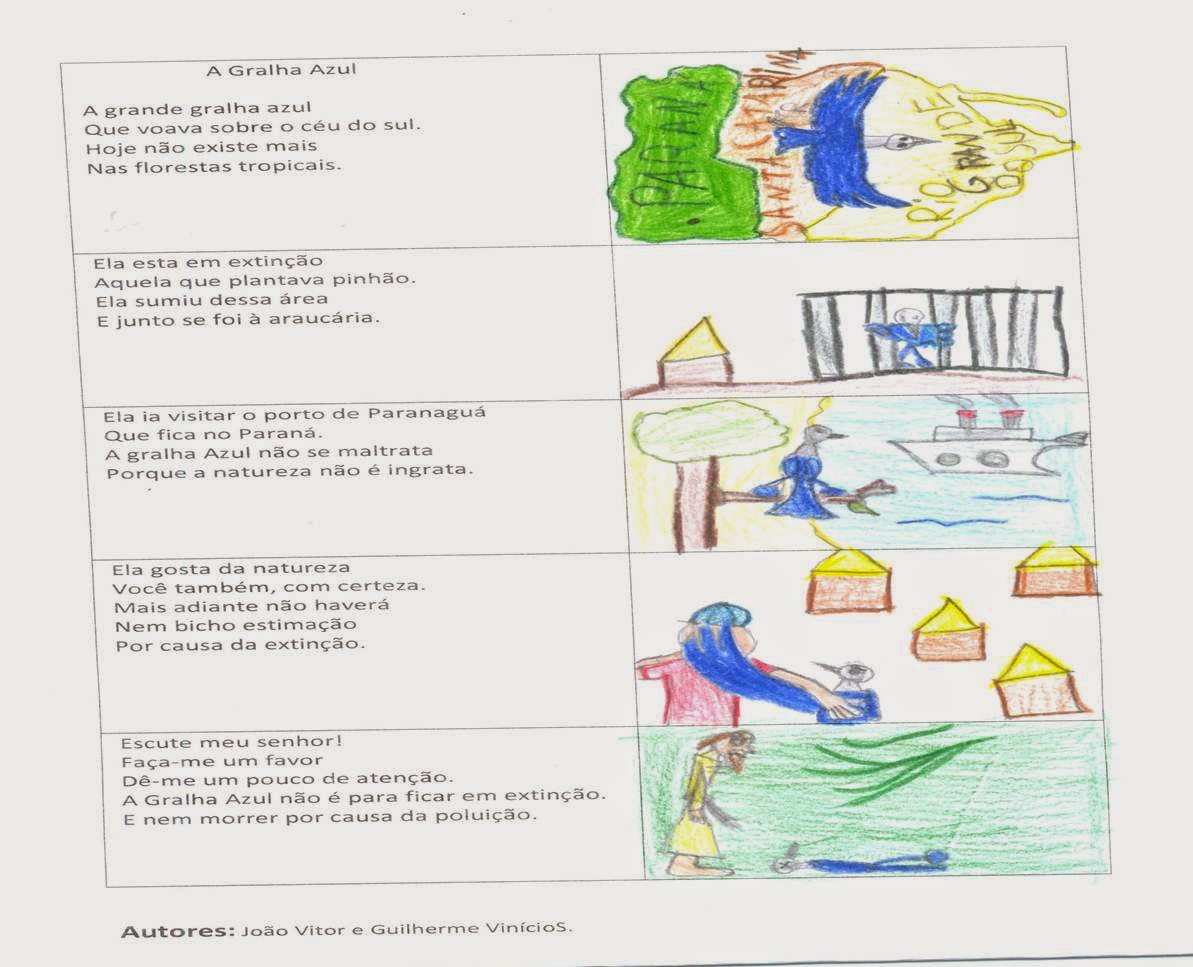 A Gralha Azul
A grande gralha azul
Que voava sobre o céu do sul.
Hoje não existe mais
Nas florestas tropicais.
PARANA
SANTA CATARINA
RIO GRANDE
DO SUL
Ela esta em extinção
Aquela que plantava pinhão.
Ela sumiu dessa área
E junto se foi à araucária.
Ela ia visitar o porto de Paranaguá
Que fica no Paraná.
A gralha Azul não se maltrata
Porque a natureza não é ingrata.
Ela gosta da natureza
Você também, com certeza.
Mais adiante não haverá
Nem bicho estimação
Por causa da extinção.
Escute meu senhor!
Faça-me um favor
Dê-me um pouco de atenção.
A Gralha Azul não é para ficar em extinção.
E nem morrer por causa da poluição.
Autores: João Vitor e Guilherme VinícioS.